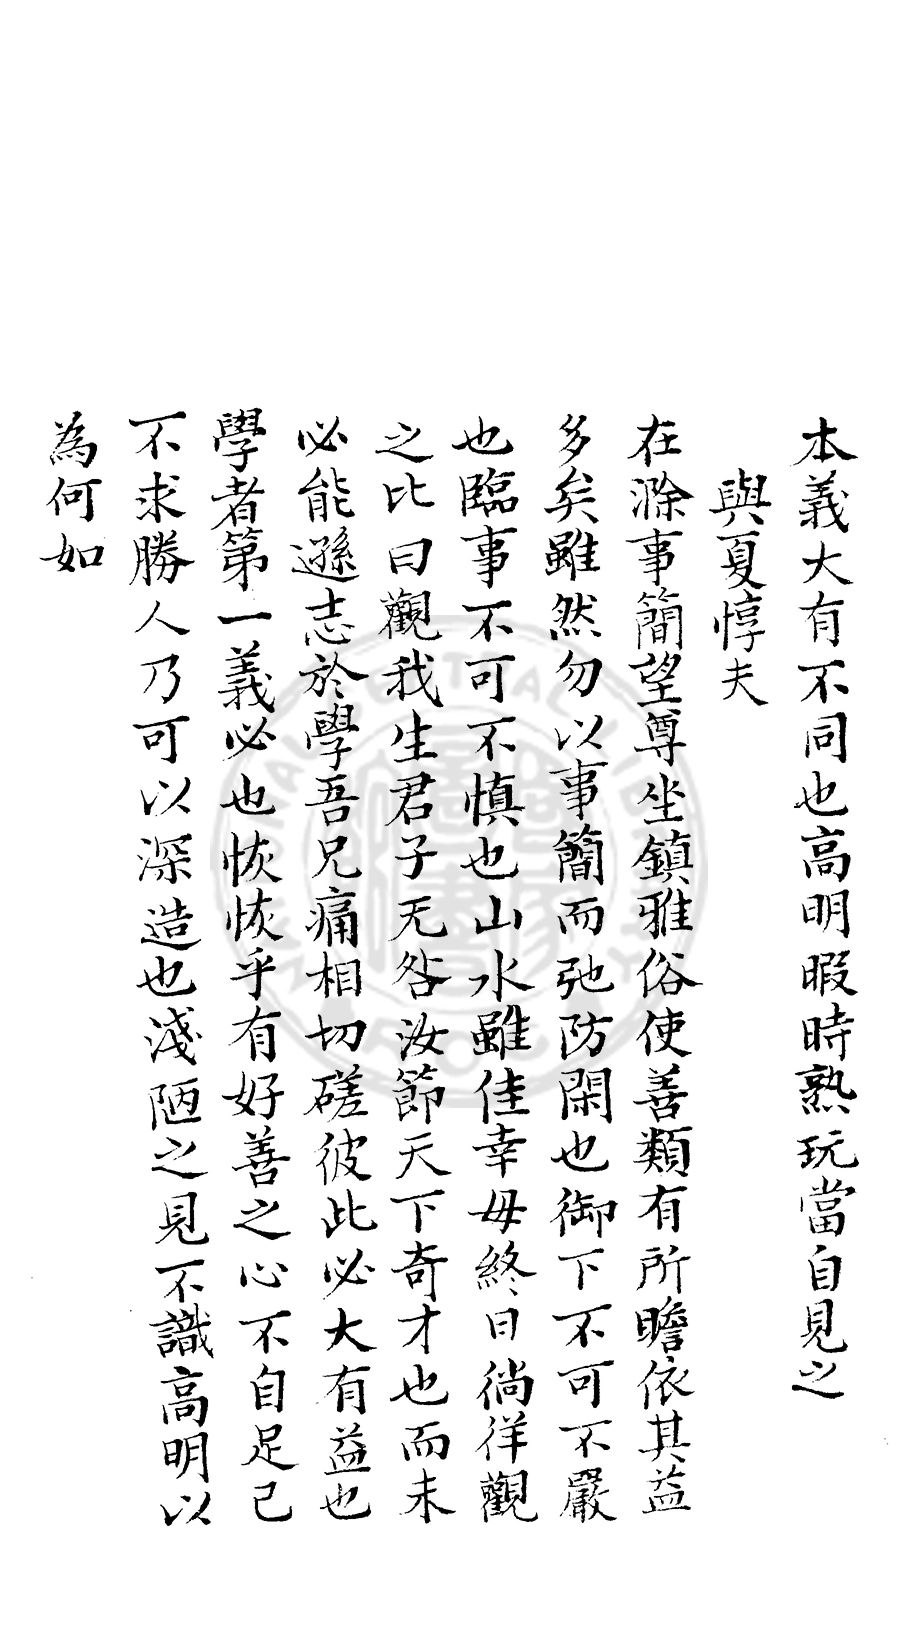 本義大有不同也高明暇時熟玩當自見之
與夏惇夫
在滁事簡望尊坐鎮雅俗使善類有所瞻依其益
多矣雖然勿以事簡而弛防閑也御下不可不嚴
也臨事不可不慎也山水雖佳幸毋終日徜徉觀
之比曰觀我生君子无咎汝節天下奇才也而未
必能遜志於學吾兄痛相切磋彼此必大有益也
學者第一義必也恢恢乎有好善之心不自足己
不求勝人乃可以深造也淺陋之見不識高明以
為何如